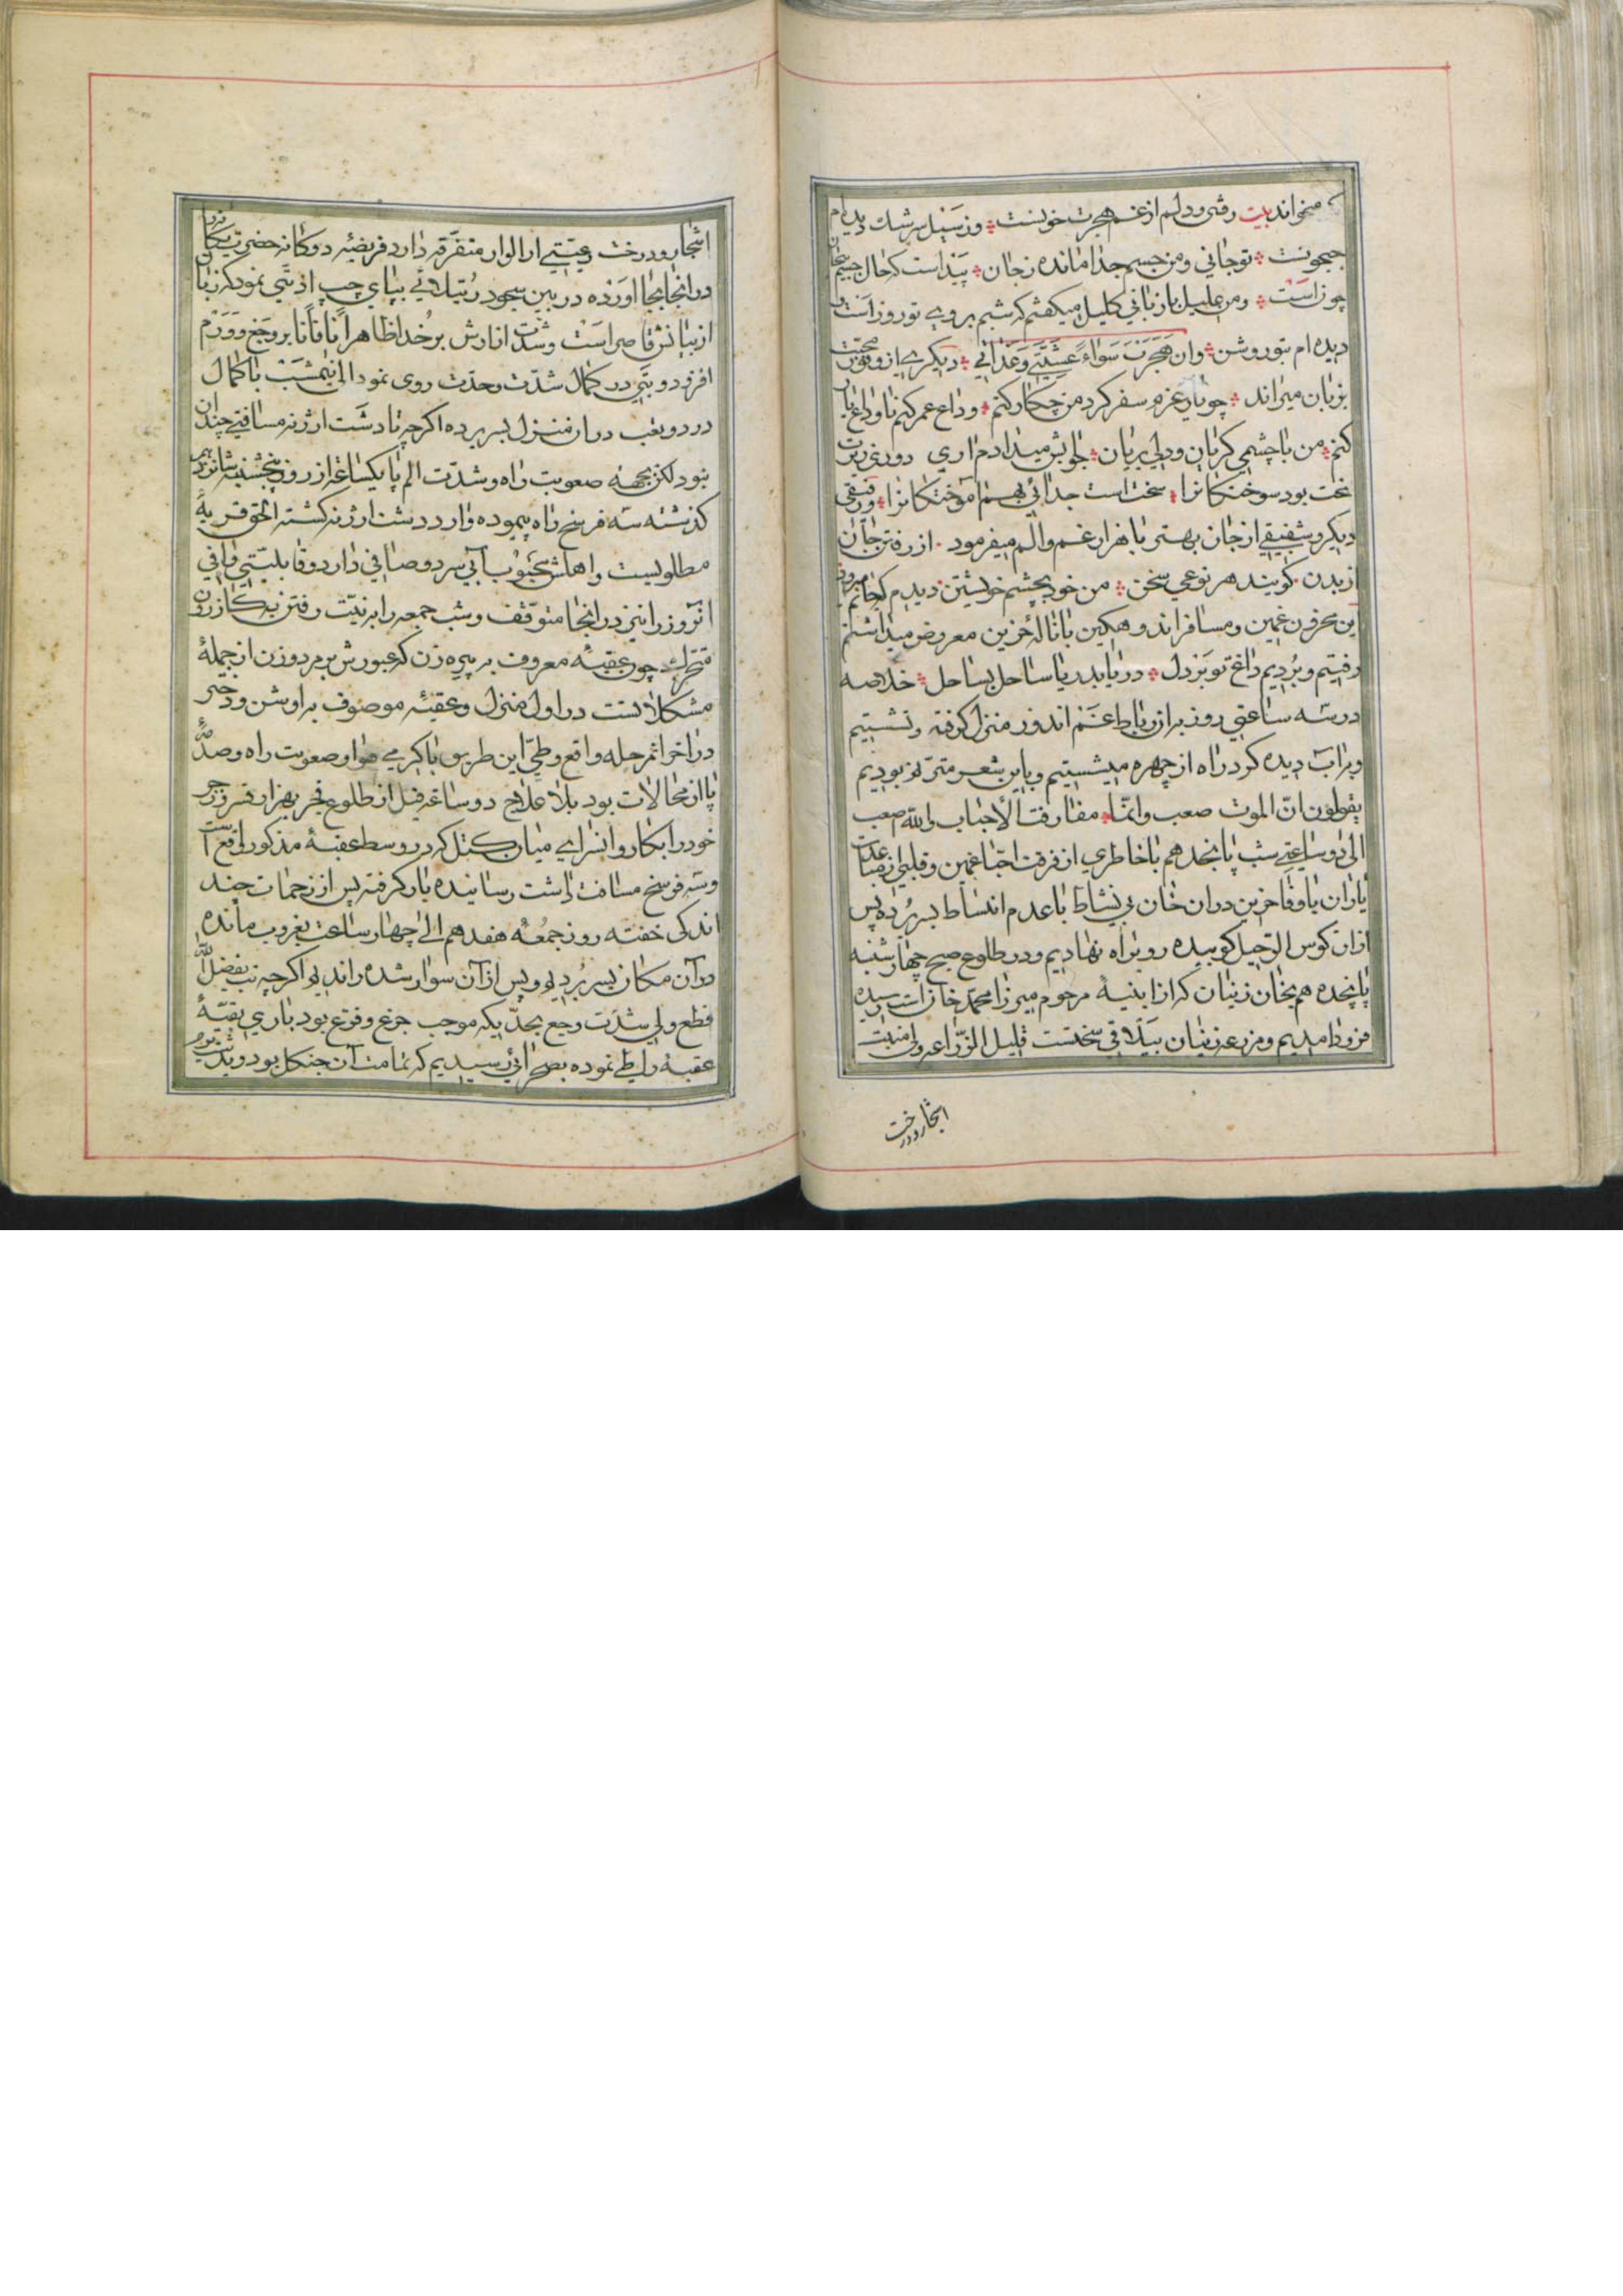 میخواند بیت رفتی و دلم از غم هجرت خونست و ز سیل سرشک دیده‌ام
جیحونست تو جانی و من جسم جدا مانده ز جان پیداست که حال جسم بیجان
چونست و من علیل با زبانی کلیل میکفتم که شبم بروی تو روز است و
دیده‌ام بتو روشن وان هجرت سواء عشیتی و غداتی دیکری از وفور محبت
بزبان میراند چو یار عزم سفر کرد من چکار کنم وداع عمر کنم تا وداع یار
کنم من با چشمی کریان و دلی بریان جوابش میدادم اری دوری ز برت
سخت بود سوختکانرا سخت است جدائی بهم اموختکانرا و رفیقی
دیکر و شفیقی از جان بهتر با هزار غم والم میفرمود از رفتن جان
از بدن کویند هر نوعی سخن من خود بچشم خویشتن دیدم که جانم میرود
این محزون غمین و مسافر اندوهکین با نالهٔ حزین معروض میداشتم
رفتیم و بردیم داغ تو بر دل دریا بدریا ساحل بساحل خلاصه
در سه ساعتی روز برازن باط غم اندوز منزل کرفته و نشستیم
و براب دیده کرد راه از چهره میشستیم و باین شعر مترنم بودیم
یقولون انّ الموت صعب وانّما مفارقت الأحباب والله صعب
الی دو ساعتی شب پانجدهم با خاطری از فرقت احبا غمین و قلبی از مباعدت
یاران با وفا حزین دران خان بی نشاط با عدم انبساط بسر برده پس
ازان کوس الرحیل کوبیده رو براه نهادیم و در طلوع صبح چهار شنبه
پانجده هم بخان زنیان که از ابنیهٔ مرحوم میرزا محمد خانست رسیده
فرود امدیم و مزرعه زنیان ییلاقی سختست قلیل الزراعه ولی منبت
اشجار و درخت
اشجار و درخت وعیتی از الوار متفرقه دارد فریضهٔ دوکانه حضرت یکانه را
در انجا بجا اورده در بین سجود رتیلائی بپای چپ اذیتی نمود که زبان
از بیانش قاصر است و شدت اثارش بر خدا ظاهر اناً فاناً بر وجع و ورم
افزود و تبی در کمال شدت و حدت روی نمود الی نیمشب با کمال
درد و تعب دران منزل بسر برده اکر چه تا دشت ارژنه مسافتی چندان
نبود لکن بجهة صعوبت راه و شدت الم پا یکساعت از روز پنجشنبه شانزدهم
کذشته سه فرسخ راه پیموده وارد دشت ارژنه کشته الحق قریهٔ
مطلوبیست و اهلش محبوب آبی سرد و صافی دارد و قابلیتی وافی
انروز را نیز در انجا متوقف و شب جمعه را بر نیت رفتن بکازرون
متحرک چون عقبهٔ معروف به پیره زن که عبورش بر مرد و زن از جملهٔ
مشکلاتست در اول منزل و عقبهٔ موصوف به اوشن و دختر
در اخر اثمرحله واقع و طی این طریق با کرمی هوا و صعوبت راه و صدمهٔ
پا از محالات بود بلا علاج دو ساعت قبل از طلوع فجر بهزار قسر و زجر
خود را بکاروانسرای میان کتل که در وسط عقبهٔ مذکور واقع است
و سه فرسخ مسافت داشت رسانیده بار کرفته پس از زحمات چند
اندکی خفته روز جمعه هفدهم الی چهار ساعت بغروب مانده
در آن مکان بسر بردیم و پس از آن سوار شده راندیم اکر چه تب بفضل الله
قطع ولی شدت وجع بحدیکه موجب جزع و فزع بود باری بقیهٔ
عقبه را طی نموده بصحرائی رسیدیم که تمامت آن جنکل بود و بدشت بروم